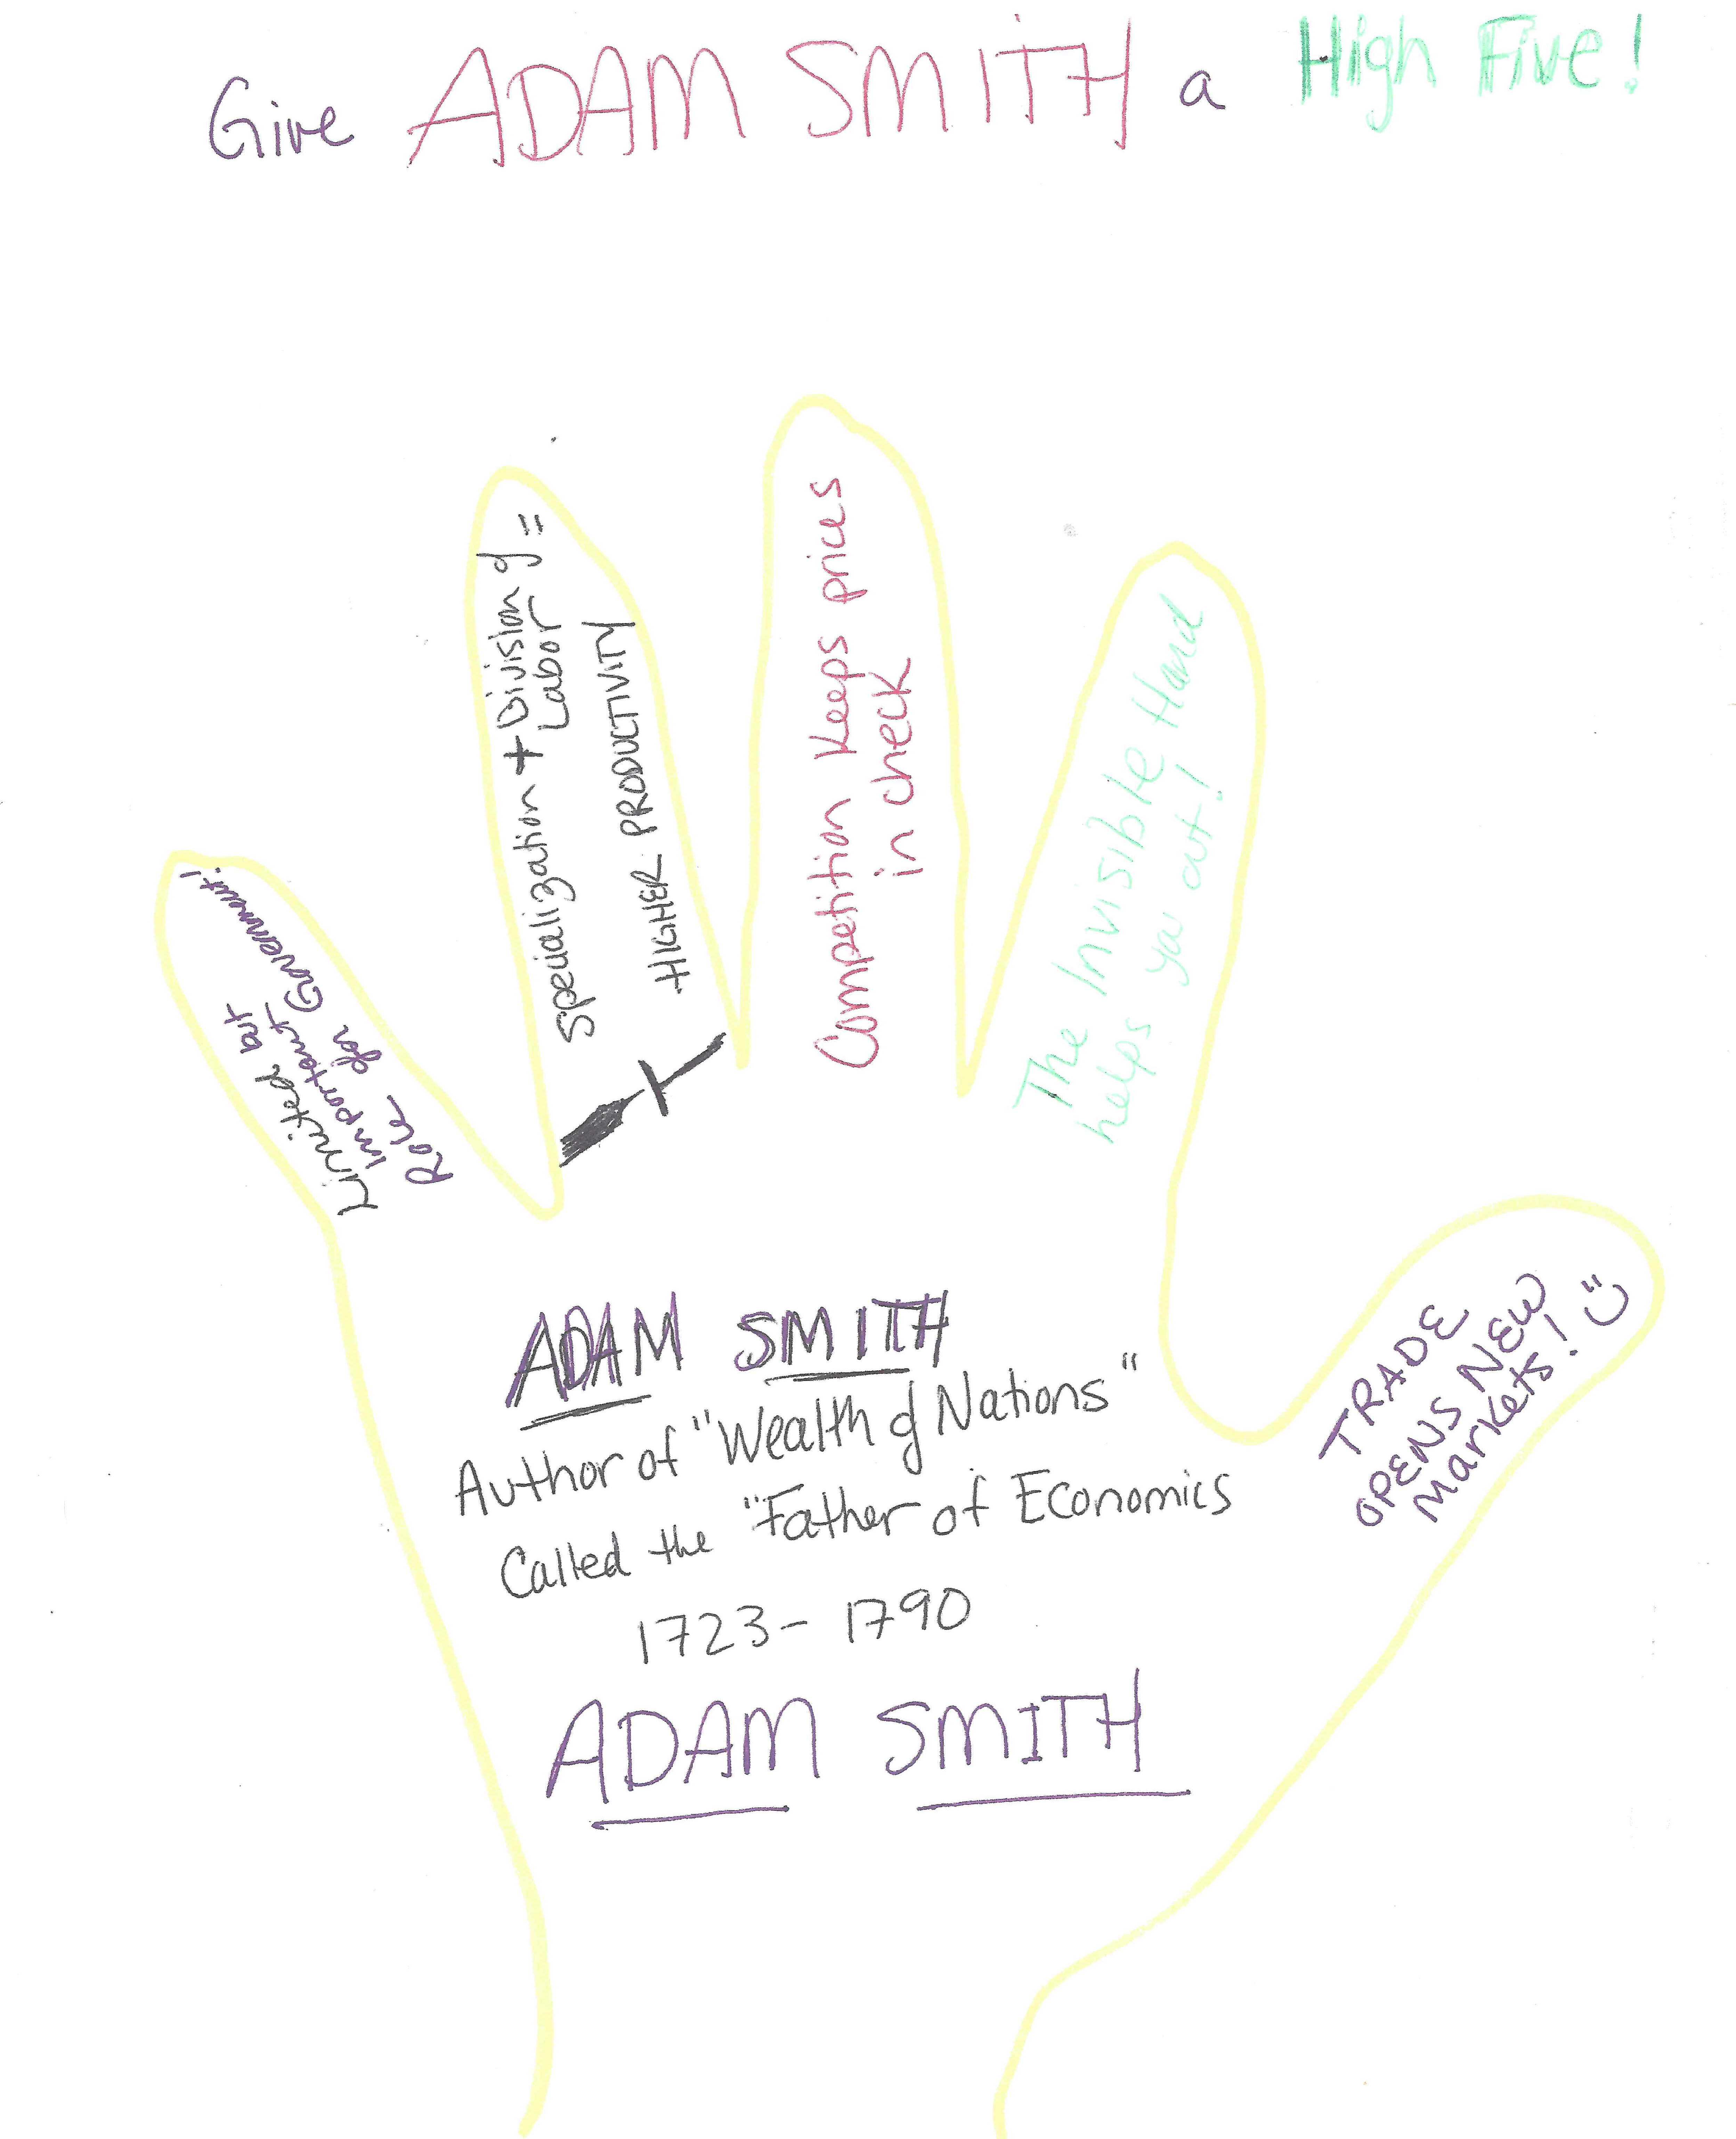 Give ADAM SMITH a High Five!
Limited but
important
Role for Government!
Specialization + Division of
Labor =
HIGHER PRODUCTIVITY
Competition Keeps prices
in check
The Invisible Hand
helps ya out!
TRADE
OPENS NEW
Markets!
ADAM SMITH
Author of "Wealth of Nations"
Called the "Father of Economics
1723-1790
ADAM SMITH